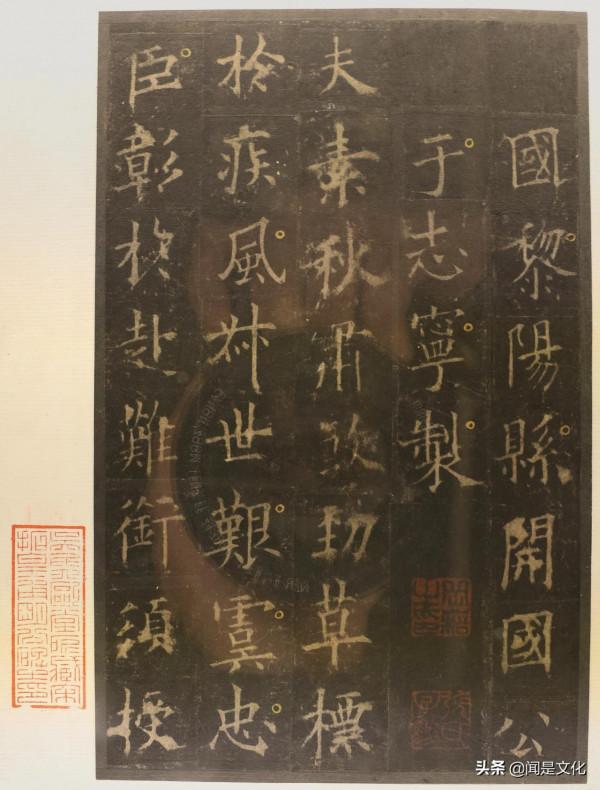 國黎陽縣開國公
于志寧製
夫素秋肅煞勁草標
於疾風叔世艱虞忠
臣彰於赴難銜須授
头条 @闻是文化